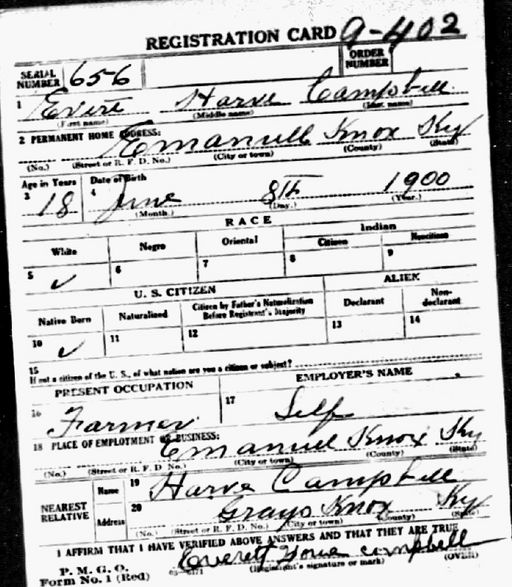 REGISTRATION CARD a-402
SERIAL NUMBER 656 ORDER NUMBER
1 Harve Campbell
(First name) (Middle name) (Last name)
2 PERMANENT HOME ADDRESS: Emanuell Knox Ky
(No.) (Street or R. F. D. No.) (City or town) (County) (State)
Age in Years Date of Birth
3 18 4 June 8th 1900
(Month.) (Day.) (Year.)
RACE
White Negro Oriental Indian
Citizen Noncitizen
5 ✓ 6 7 8 9
U. S. CITIZEN ALIEN
Native Born Naturalized Citizen by Father's Naturalization Before Registrant's Majority Declarant Non-declarant
10 ✓ 11 12 13 14
15
If not a citizen of the U. S., of what nation are you a citizen or subject?
PRESENT OCCUPATION EMPLOYER'S NAME
16 Farmer 17 Self
18 PLACE OF EMPLOYMENT OR BUSINESS: Emanuel Knox Ky
(No.) (Street or R. F. D. No.) (City or town) (County) (State)
NEAREST RELATIVE Name 19 Harve Campbell
Address 20 Grays Knox Ky
(No.) (Street or R. F. D. No.) (City or town) (County) (State)
I AFFIRM THAT I HAVE VERIFIED ABOVE ANSWERS AND THAT THEY ARE TRUE
P. M. G. O. Everett campbell
Form No. 1 (Red) (Registrant's signature or mark) (OVER)